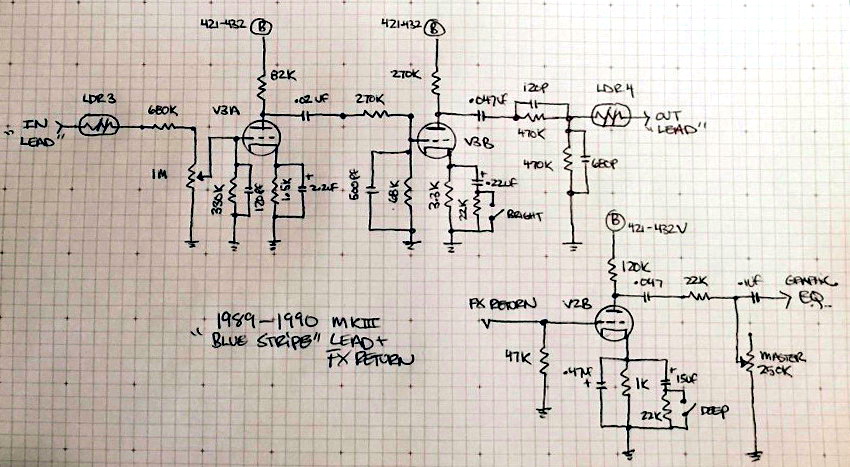 421-432 B
421-432 B
82K
270K
LDR3
680K
V3A
.02UF
270K
.047UF
120P
LDR4
IN
"LEAD"
OUT
"LEAD"
470K
V3B
1M
330K
120PF
1.5K
+
2.2UF
500PF
68K
3.3K
+
.22UF
22K
BRIGHT
470K
680P
B
421-432V
120K
.047
22K
.1UF
GRAPHIC
EQ
FX RETURN
V2B
47K
.47UF
+
1K
+
15UF
22K
DEEP
MASTER
250K
1989-1990 MKIII
"BLUE STRIPE" LEAD +
FX RETURN